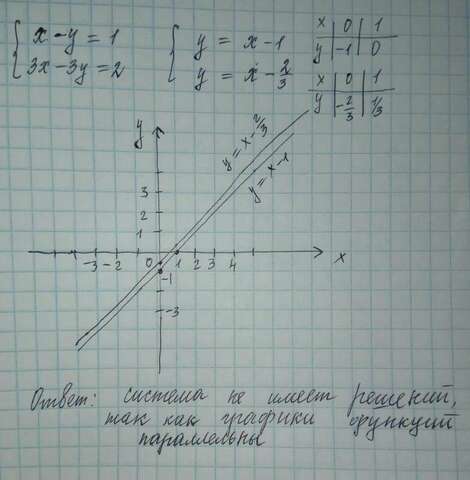 x - y = 1
3x - 3y = 2
y = x - 1
y = x - 2/3
x | 0 | 1
y | -1 | 0
x | 0 | 1
y | -2/3 | 1/3
y
y = x - 2/3
y = x - 1
3
2
1
-3 -2 0 1 2 3 4 x
-1
-3
Ответ: система не имеет решений,
так как графики функций
параллельны